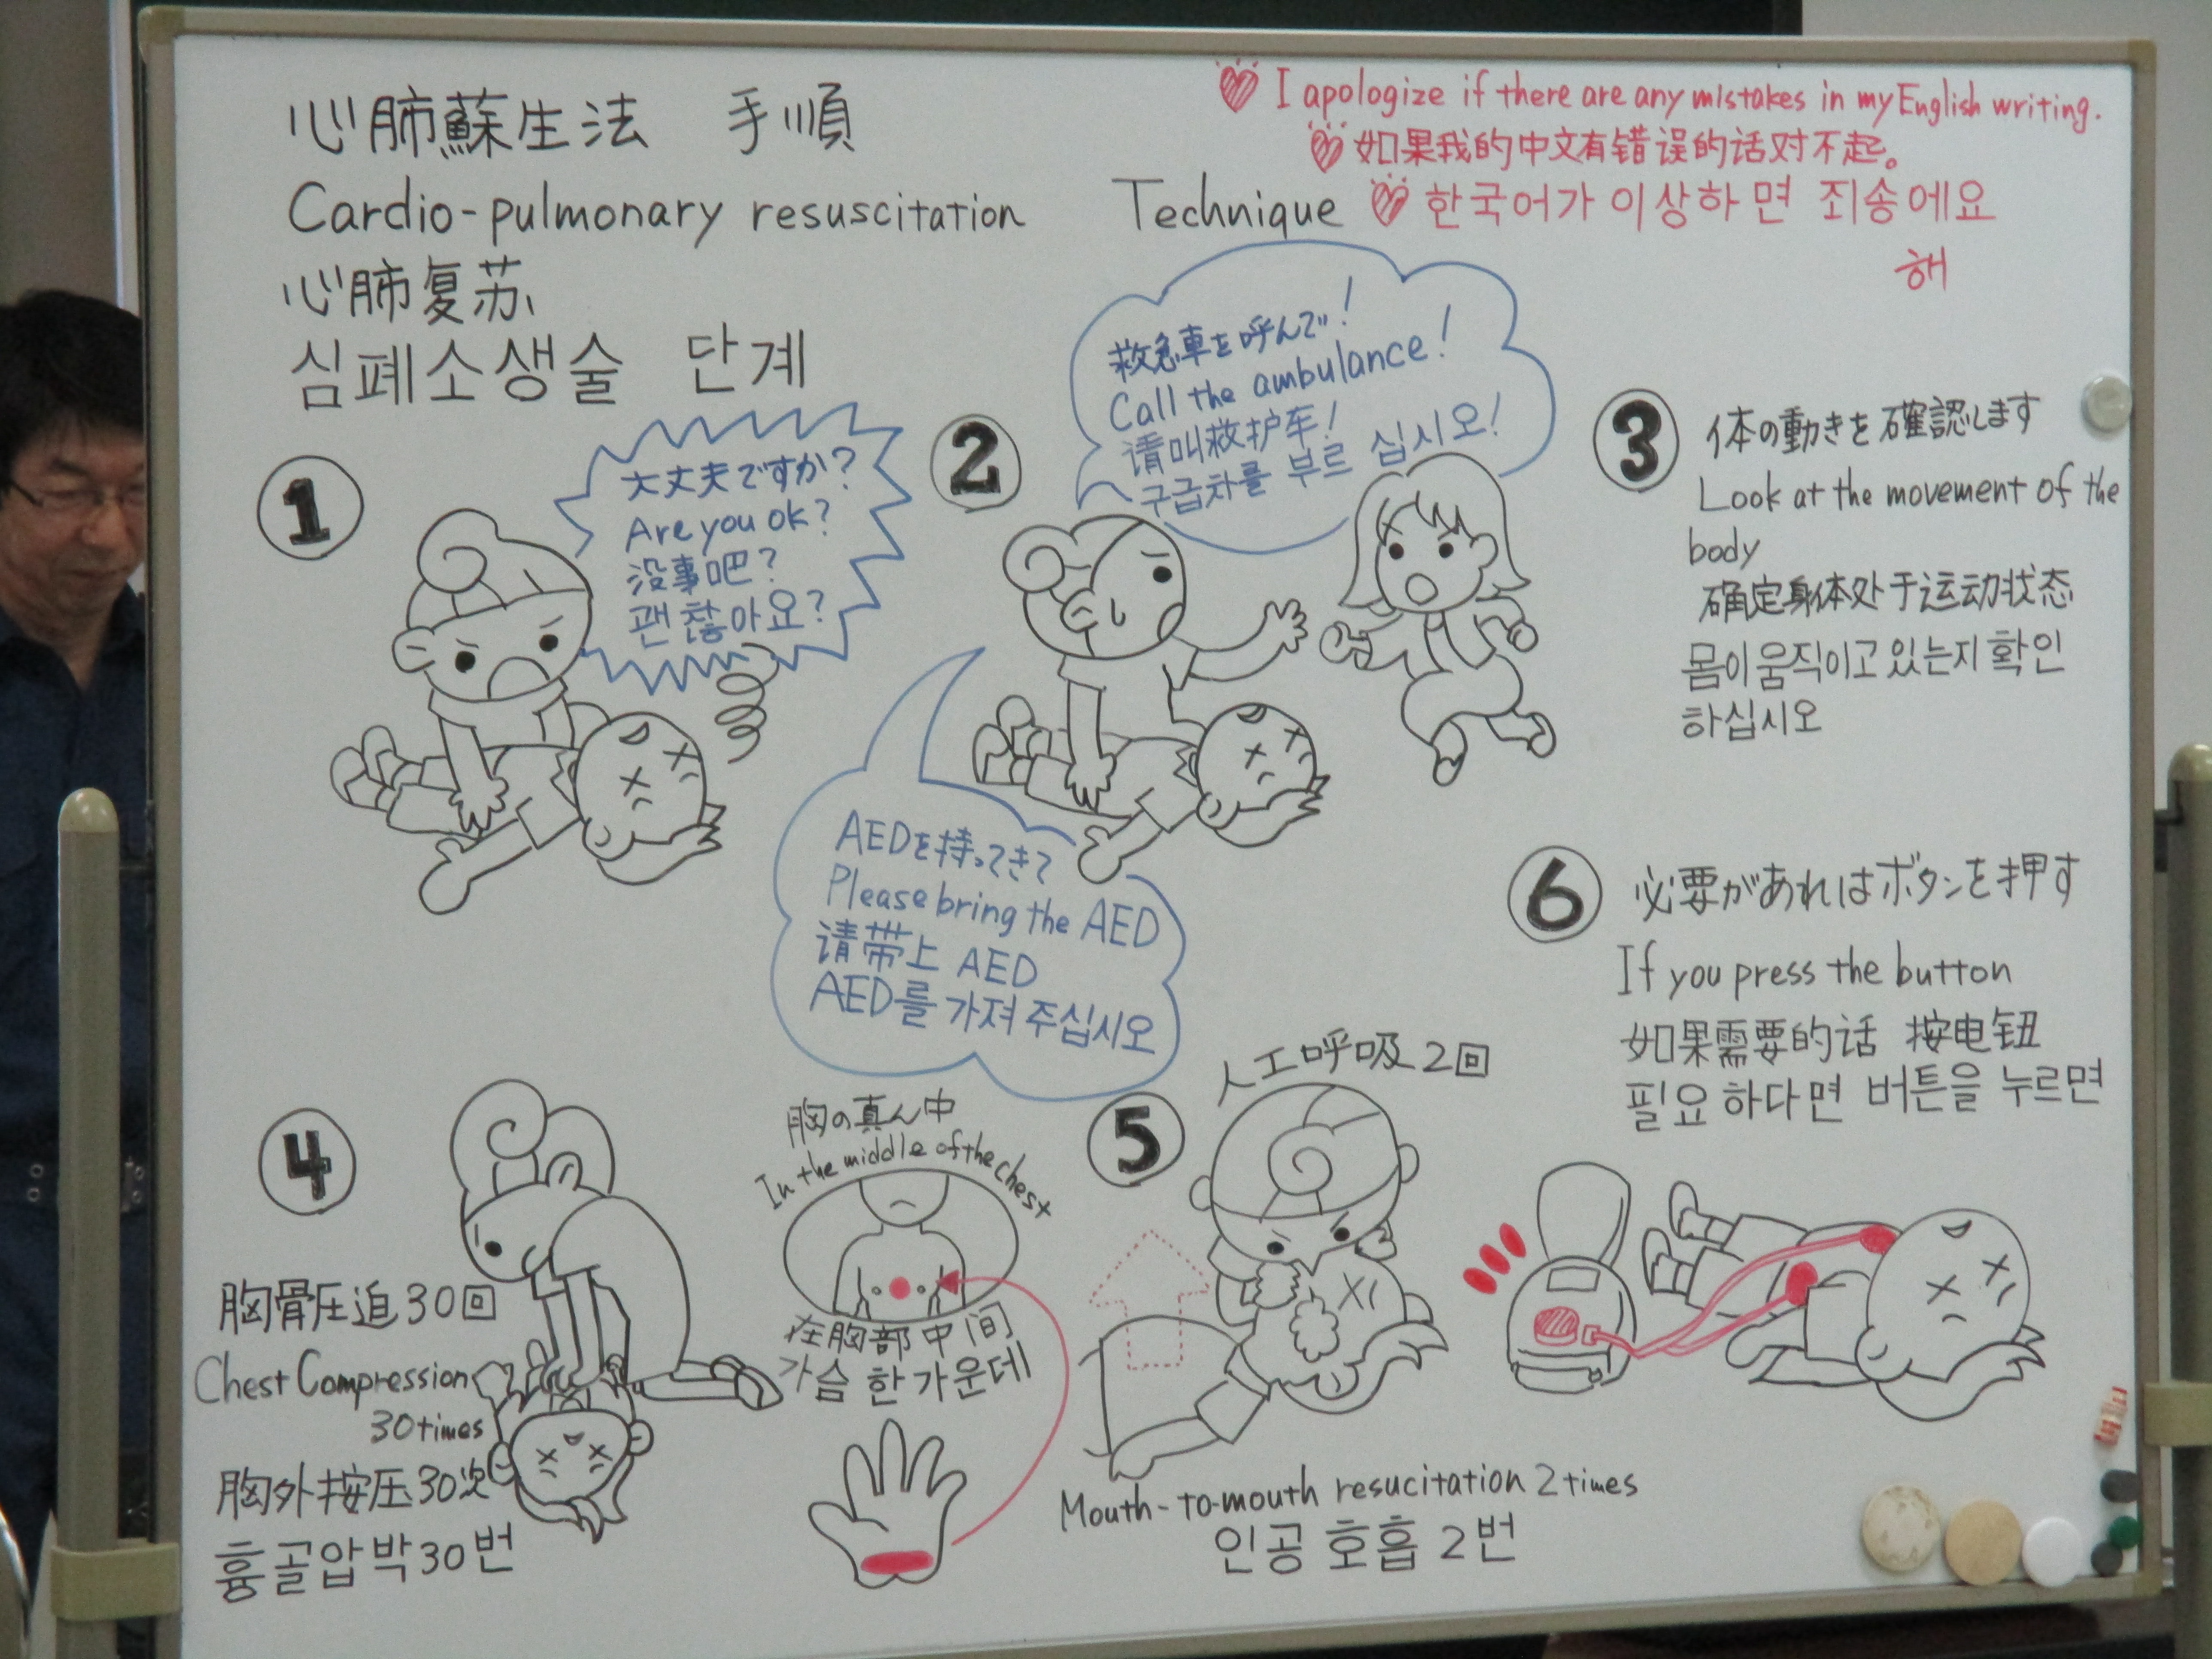 心肺蘇生法 手順
Cardio-pulmonary resuscitation Technique
心肺复苏
심폐소생술 단계
I apologize if there are any mistakes in my English writing.
如果我的中文有错误的话对不起。
한국어가 이상하면 죄송에요
해
1
大丈夫ですか?
Are you ok?
没事吧?
괜찮아요?
2
救急車を呼んで!
Call the ambulance!
请叫救护车!
구급차를 부르 십시오!
AEDを持ってきて
Please bring the AED
请带上 AED
AED를 가져 주십시오
3
体の動きを確認します
Look at the movement of the
body
确定身体处于运动状态
몸이 움직이고 있는지 확인
하십시오
4
胸骨圧迫30回
Chest Compression
30times
胸外按压30次
흉골압박30번
胸の真ん中
In the middle of the chest
在胸部中间
가슴 한가운데
5
人工呼吸2回
Mouth-to-mouth resucitation 2times
인공 호흡 2번
6
必要があればボタンを押す
If you press the button
如果需要的话 按电钮
필요하다면 버튼을 누르면